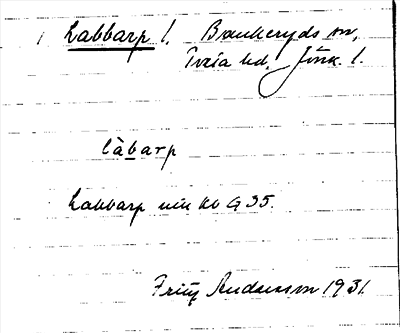 Labbarp l. Bankeryds sn,
Tveta hd. Jönk. l.
làbarp
Labbarp
kb G 35.
Fritz Andersson 1931.